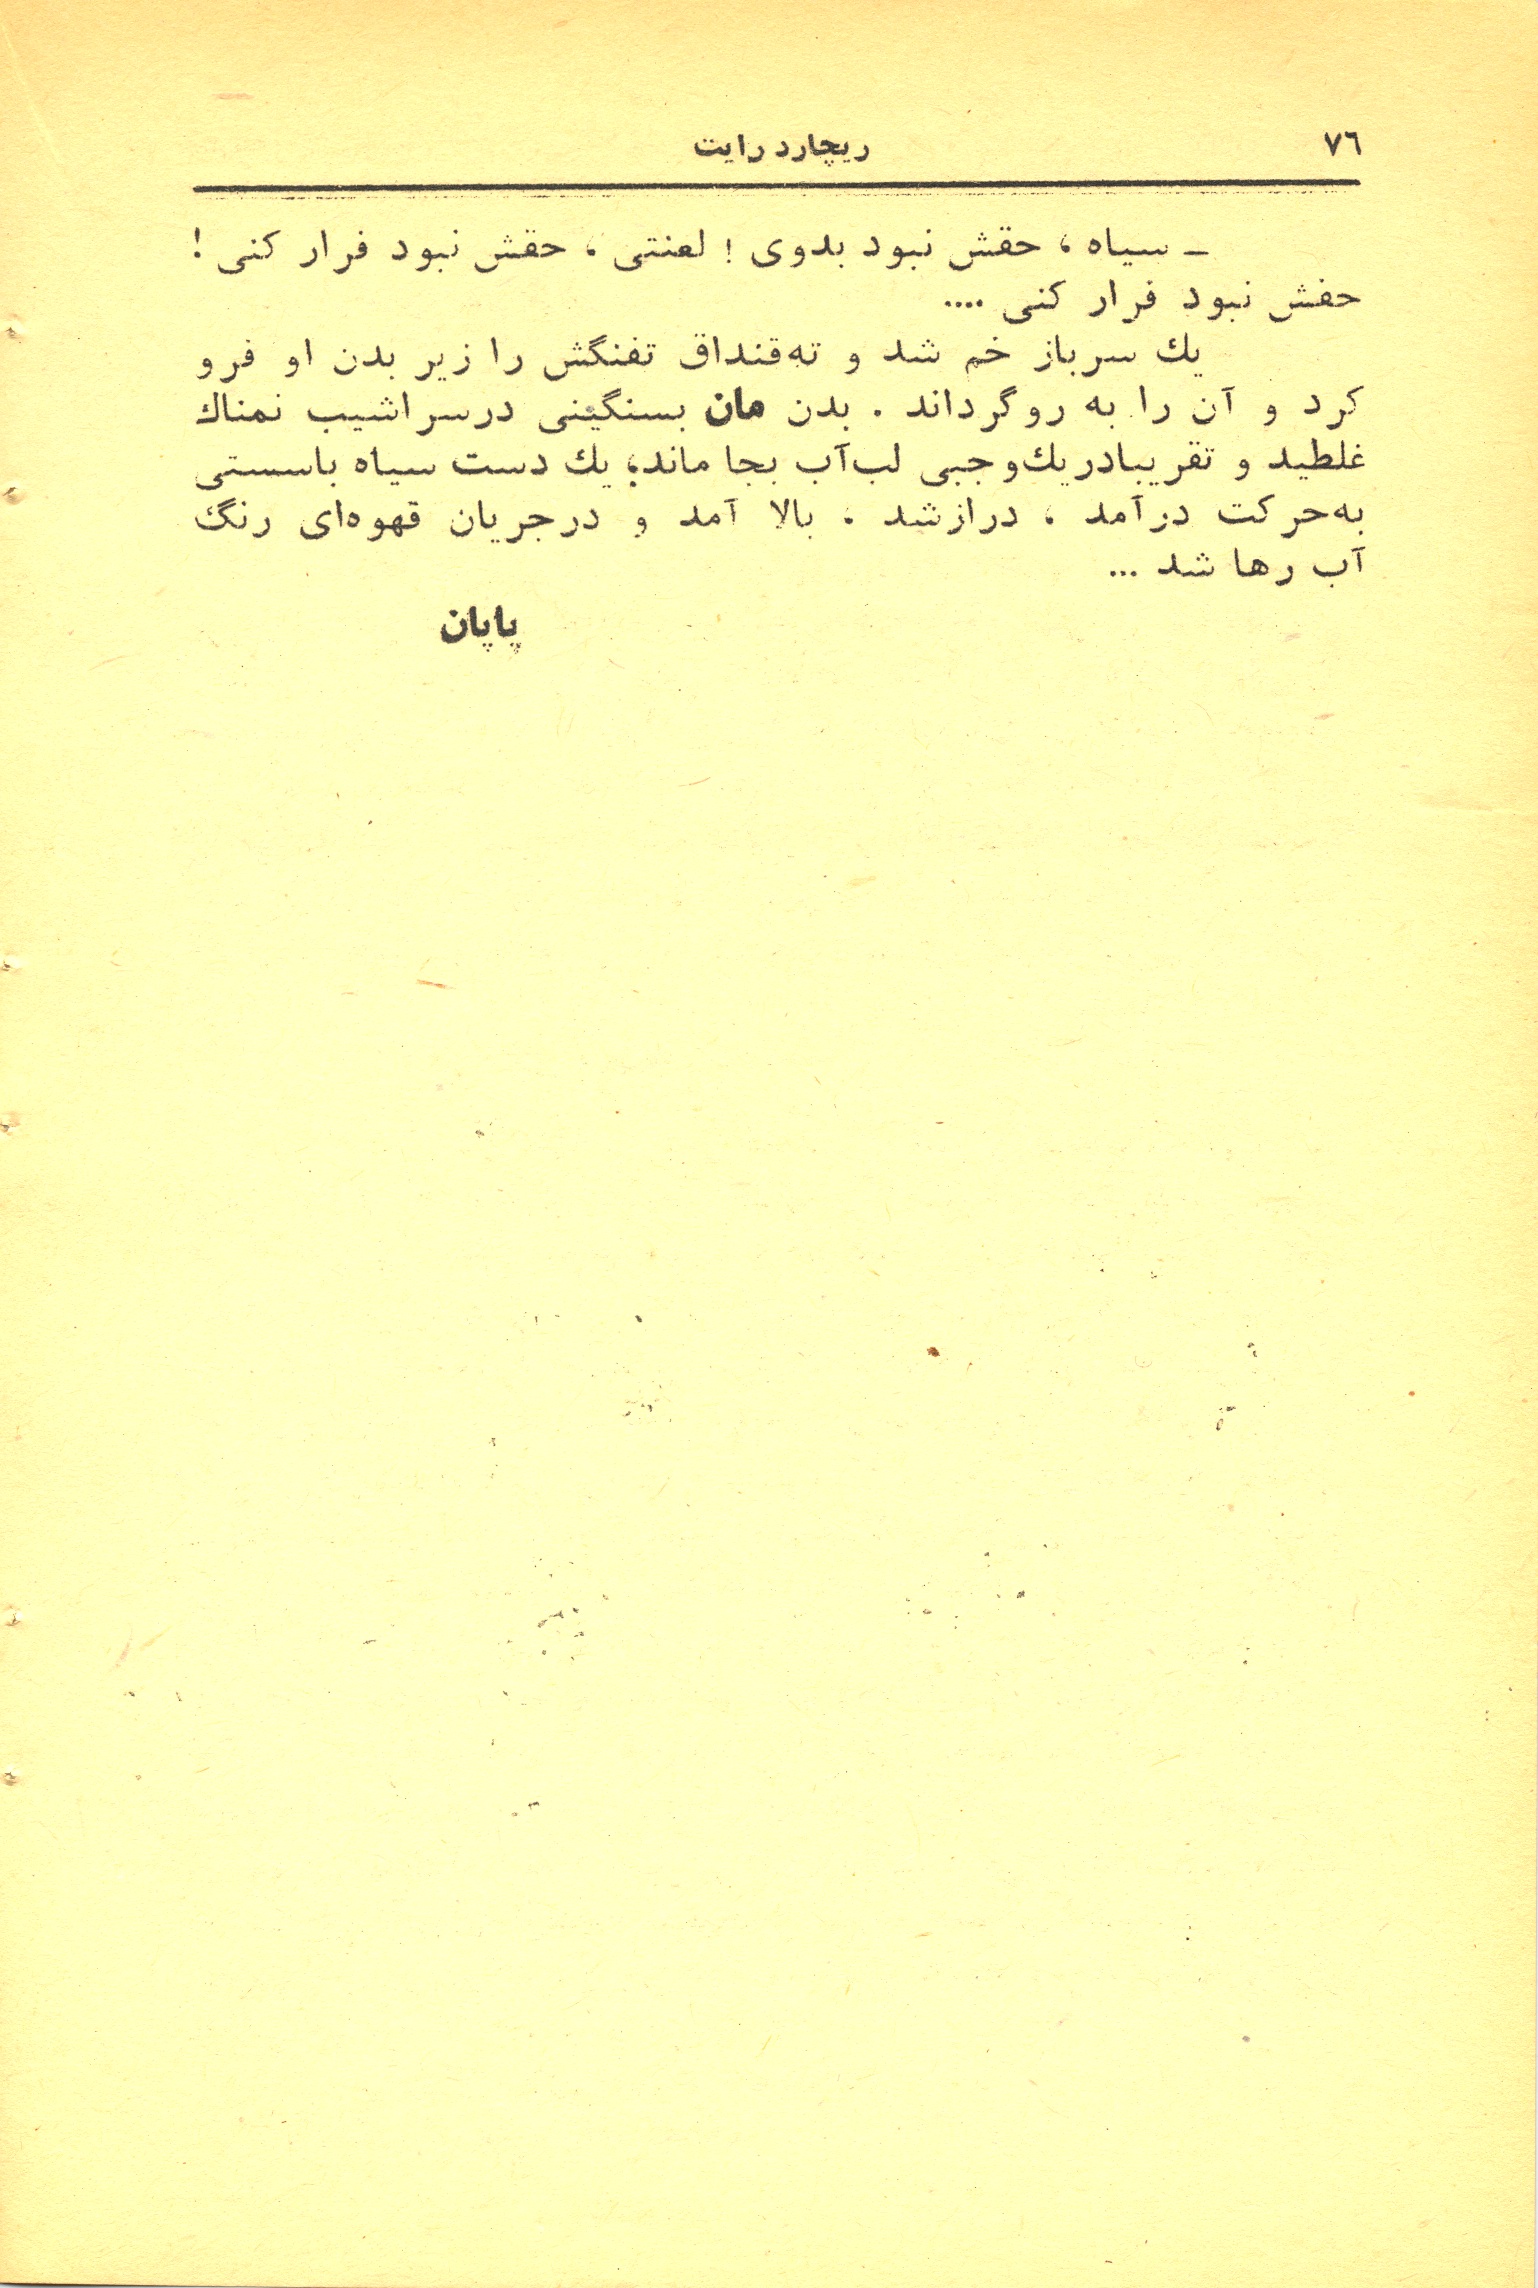 ۷٦ ریچارد رایت
ـ سیاه ، حقش نبود بدوی ! لعنتی ، حقش نبود فرار کنی !
حقش نبود فرار کنی ....
یك سرباز خم شد و ته‌قنداق تفنگش را زیر بدن او فرو
کرد و آن را به روگرداند . بدن مان بسنگینی درسراشیب نمناك
غلطید و تقریبادریك‌وجبی لب‌آب بجا ماند؛ یك دست سیاه باسستی
به‌حرکت درآمد ، درازشد ، بالا آمد و درجریان قهوه‌ای رنگ
آب رها شد ...
پایان